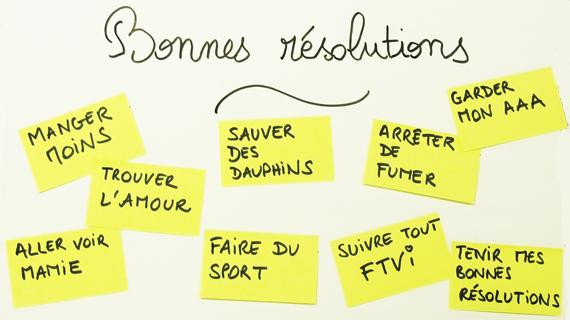 Bonnes résolutions
MANGER
MOINS
TROUVER
L'AMOUR
SAUVER
DES
DAUPHINS
ARRÊTER
DE
FUMER
GARDER
MON AAA
ALLER VOIR
MAMIE
FAIRE DU
SPORT
SUIVRE TOUT
FTVi
TENIR MES
BONNES
RÉSOLUTIONS